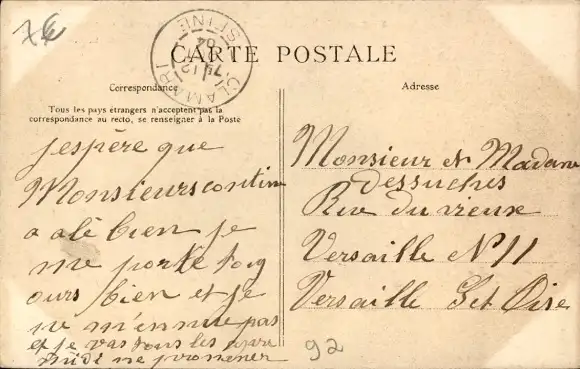 74
CARTE POSTALE
CLAMART
SEINE
Correspondance
Tous les pays étrangers n'acceptent pas la
correspondance au recto, se renseigner à la Poste
j'espère que
Monsieurs contin
a alé bien je
me porte toug
ours bien et je
ne m'ennuie pas
et je vas tous les
midi me promener
Adresse
Monsieur et Madame
dessuches
Rue du vieux
Versaille N 11
Versaille Set Oise
92